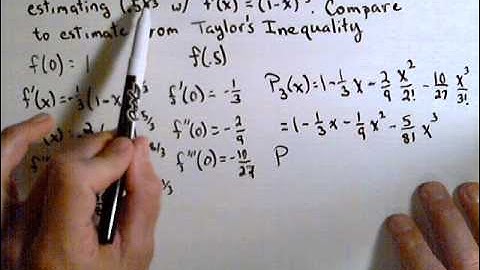 estimating (.5)^1/3 w/ f(x) = (1-x)^1/3. Compare
to estimate from Taylor's Inequality
f(0) = 1 f(.5)
f'(x) = -1/3 (1-x) f'(0) = -1/3 P₃(x) = 1 - 1/3 x - 2/9 x²/2! - 10/27 x³/3!
(x) = -2 5/3 f''(0) = -2/9 = 1 - 1/3 x - 1/9 x² - 5/81 x³
f''' 8/3 f'''(0) = -10/27 P